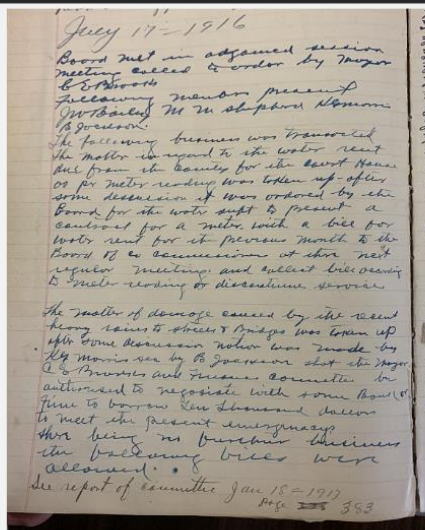 July 17 = 1916
Board met in adjourned session
meeting called to order by Mayor
C E Brooks
Following members present
J W Bailey M M Shepherd H Morris
B Jackson.
The following business was transacted
The matter in regard to the water rent
due from the County for the Court House
as per meter reading was taken up - after
some discussion it was ordered by the
Board for the water supt to present a
contract for a meter with a bill for
water rent for the previous month to the
Board of co commissioners at their next
regular meeting and collect bill according
to meter reading or discontinue service
The matter of damage caused by the recent
heavy rains to streets & Bridges was taken up
after some discussion motion was made by
Morris sec by B Jackson that the Mayor
C E Brooks and Finance committee be
authorised to negotiate with some Bank
time to borrow Ten Thousand dollars
to meet the present emergency
there being no further business
the following bills were
allowed.
See report of committee Jan 18 = 1917
Page 383